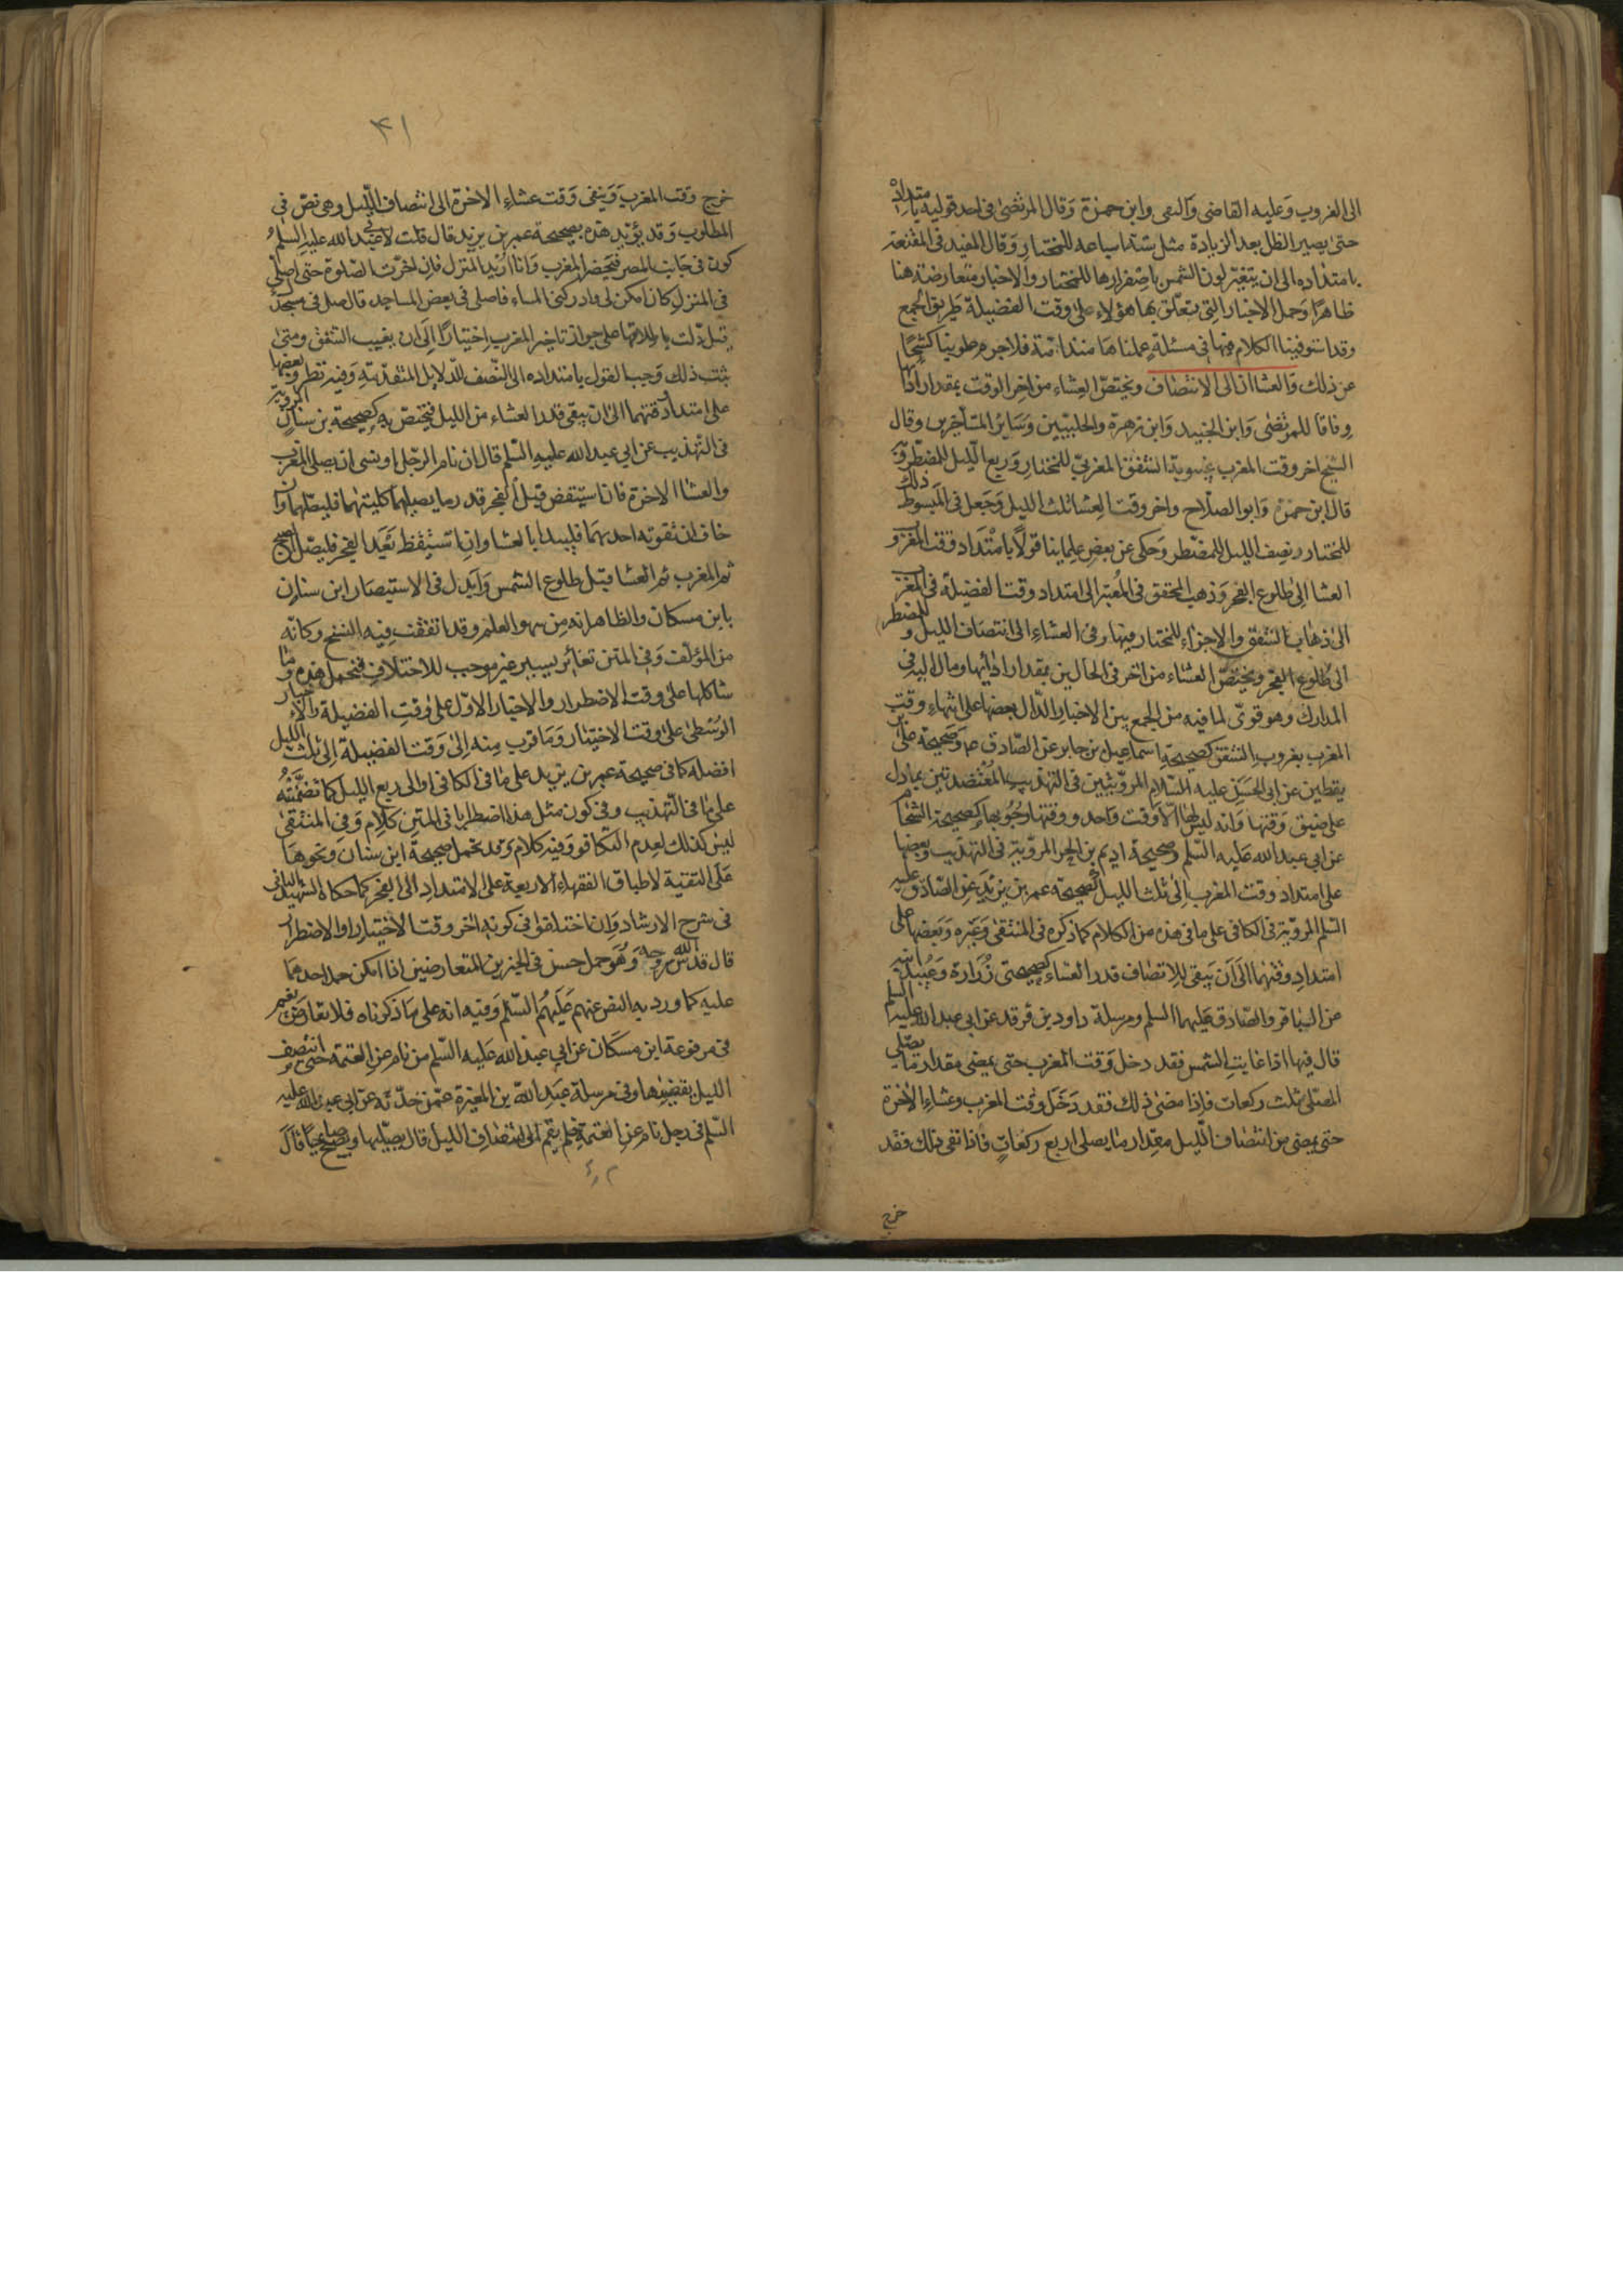 الى الغروب وعليه القاضى والحلبى وابن حمزة وقال المرتضى فى احد قوليه بامتداده
حتى يصير الظل بعد الزيادة مثل ستة اسباعه للمختار وقال المفيد فى المقنعة
بامتداده الى ان يتغير لون الشمس باصفرارها للمختار والاخبار متعارضة هنا
ظاهرا وحمل الاخبار التى تعلق بها هؤلاء على وقت الفضيلة طريق الجمع
وقد استوفينا الكلام فيها فى مسئلة عملناها منذ فلا جرم طوينا كشحا
عن ذلك والعشاان الى الانتصاف ويختص العشاء من اخر الوقت بمقدار ادائها
وفاقا للمرتضى وابن الجنيد وابن زهرة والحلبيين وساير المتأخرين وقال
الشيخ اخر وقت المغرب غيبوبة الشفق المغربى للمختار وربع الليل للمضطر وبه
قال ابن حمزة وابو الصلاح واخر وقت العشا ثلث الليل وجعل فى المبسوط ذلك
للمختار ونصف الليل للمضطر وحكى عن بعض علماينا قولا بامتداد وقت المغرب و
العشا الى طلوع الفجر وذهب المحقق فى المعتبر الى امتداد وقت الفضيلة فى المغرب
الى ذهاب الشفق والاجزاء للمختار فيها وفى العشاء الى انتصاف الليل وللمضطر
الى طلوع الفجر ويختص العشاء من اخر فى الحالين بمقدار ادائها ومال اليه فى
المدارك وهو قوى لما فيه من الجمع بين الاخبار الدال بعضها على انتهاء وقت
المغرب بغروب الشفق كصحيحة اسماعيل بن جابر عن الصادق عم وصحيحة على بن
يقطين عن ابى الحسن عليه السلام المرويتين فى التهذيب المعتضدتين بما دل
على ضيق وقتها وانه ليس لها الا وقت واحد ووقتها وجوبها كصحيحة الشحام
عن ابى عبد الله عليه السلم وصحيحة اديم بن الحر المروية فى التهذيب وبعضها
على امتداد وقت المغرب الى ثلث الليل كصحيحة عمر بن يزيد عن الصادق عليه
السلم المروية فى الكافى على ما فى هذه من الكلام كما ذكره فى المنتقى وغيره وبعضها على
امتداد وقتهما الى ان يبقى للانتصاف قدر العشاء كصحيحتى زرارة وعبيد ابنه
عن الباقر والصادق عليهما السلم ومرسلة داود بن فرقد عن ابى عبد الله عليه السلم
قال فيها اذا غابت الشمس فقد دخل وقت المغرب حتى يمضى مقدار ما يصلى
المصلى ثلث ركعات فاذا مضى ذلك فقد دخل وقت المغرب وعشاء الاخرة
حتى يبقى من انتصاف الليل مقدار ما يصلى اربع ركعات فاذا بقى ذلك فقد
خرج
٤١
خرج وقت المغرب وبقى وقت عشاء الاخرة الى انتصاف الليل وهى نص فى
المطلوب وقد يؤيد هذه بصحيحة عمر بن يزيد قال قلت لابى عبد الله عليه السلم
كون فى جانب المصر فتحضر المغرب وانا اريد المنزل فان اخرت الصلوة حتى اصلى
فى المنزل كان امكن لى وادركنى المساء فاصلى فى بعض المساجد قال صل فى مسجد
قيل دلت باطلاقها على جواز تاخير المغرب اختيارا الى ان يغيب الشفق ومتى
ثبت ذلك وجب القول بامتداده الى النصف للدلايل المتقدمة وفيه نظر وبعضها
على امتداد وقتهما الى ان يبقى قدر العشاء من الليل فيختص به كصحيحة بن سنان المروية
فى التهذيب عن ابى عبد الله عليه السلم قال ان نام الرجل او نسى ان يصلى المغرب
والعشا الاخرة فان استيقض قبل الفجر قدر ما يصليهما كلتيهما فليصلهما وان
خاف ان تفوته احدهما فليبدا بالعشا وان استيقظ بعد الفجر فليصل الصبح
ثم المغرب ثم العشا قبل طلوع الشمس وابدل فى الاستبصار ابن سنان
بابن مسكان والظاهر انه من سهو القلم وقد اتفقت فيه النسخ وكانه
من المؤلف وفى المتن تغاير يسير غير موجب للاختلاف فتحمل هذه وما
شاكلها على وقت الاضطرار والاخبار الاول على وقت الفضيلة والاخبار
الوسطى على وقت الاختيار وما قرب منه الى وقت الفضيلة الى ثلث الليل
افضله كما فى صحيحة عمر بن يزيد على ما فى الكافى او الى ربع الليل كما تضمنته
على ما فى التهذيب وفى كون مثل هذا اضطرابا فى المتن كلام وفى المنتقى
ليس كذلك لعدم التكافو وفيه كلام وقد تحمل صحيحة ابن سنان ونحوها
على التقية لاطباق الفقهاء الاربعة على الامتداد الى الفجر كما حكاه الشهيد الثانى
فى شرح الارشاد وان اختلفوا فى كونه اخر وقت الاختيار او الاضطرار
قال قدس الله روحه وهو حمل حسن فى الخبرين المتعارضين اذا امكن حمل احدهما
عليه كما ورد به النص عنهم عليهم السلم وفيه انه على ما ذكرناه فلا تعارض نعم
فى مرفوعة ابن مسكان عن ابى عبد الله عليه السلم من نام عن العتمة حتى انتصف
الليل يقضيها وفى مرسلة عبد الله بن المغيرة عمن حدثه عن ابى عبد الله عليه
السلم فى رجل نام عن العتمة فلم يقم الى انتصاف الليل قال يصليها ويصبح صايما قال